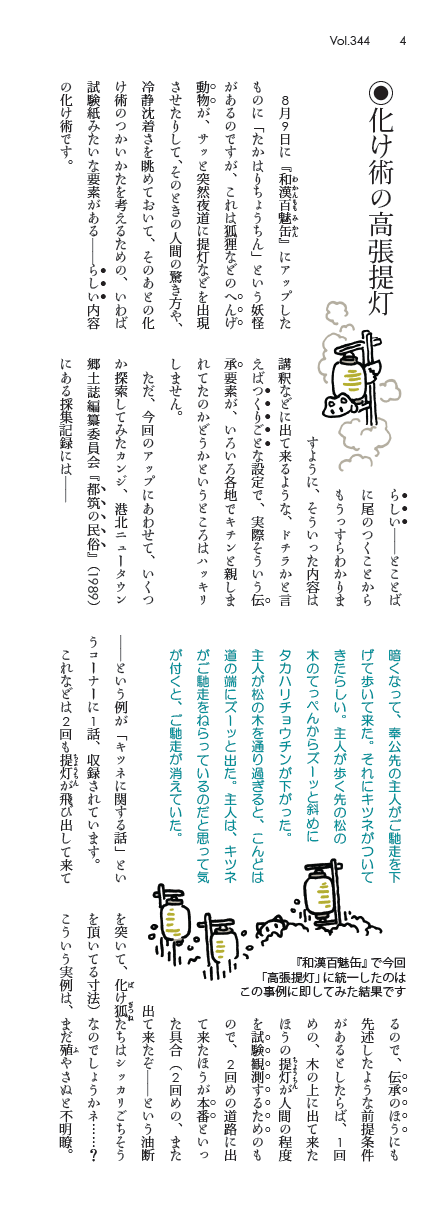 Vol.344
4
◉化け術の高張提灯
８月９日に『和漢百魅缶』にアップした
ものに「たかはりちょうちん」という妖怪
があるのですが、これは狐狸などのへんげ
動物が、サッと突然夜道に提灯などを出現
させたりして、そのときの人間の驚き方や、
冷静沈着さを眺めておいて、そのあとの化
け術のつかいかたを考えるための、いわば
試験紙みたいな要素がある――らしい内容
の化け術です。
らしい――とことば
に尾のつくことから
もうっすらわかりま
すように、そういった内容は
講釈などに出て来るような、ドチラかと言
えばつくりごとな設定で、実際そういう伝
承要素が、いろいろ各地でキチンと親しま
れてたのかどうかというところはハッキリ
しません。
ただ、今回のアップにあわせて、いくつ
か探索してみたカンジ、港北ニュータウン
郷土誌編纂委員会『都筑の民俗』（1989）
にある採集記録には――
暗くなって、奉公先の主人がご馳走を下
げて歩いて来た。それにキツネがついて
きたらしい。主人が歩く先の松の
木のてっぺんからズーッと斜めに
タカハリチョウチンが下がった。
主人が松の木を通り過ぎると、こんどは
道の端にズーッと出た。主人は、キツネ
がご馳走をねらっているのだと思って気
が付くと、ご馳走が消えていた。
――という例が「キツネに関する話」とい
うコーナーに１話、収録されています。
これなどは２回も提灯が飛び出して来て
るので、伝承のほうにも
先述したような前提条件
があるとしたらば、１回
めの、木の上に出て来た
ほうの提灯が人間の程度
を試験観測するためのも
ので、２回めの道路に出
て来たほうが本番といっ
た具合（２回めの、また
出て来たぞ――という油断
を突いて、化け狐たちはシッカリごちそう
を頂いてる寸法）なのでしょうかネ……？
こういう実例は、まだ殖やさぬと不明瞭。
『和漢百魅缶』で今回
「高張提灯」に統一したのは
この事例に即してみた結果です